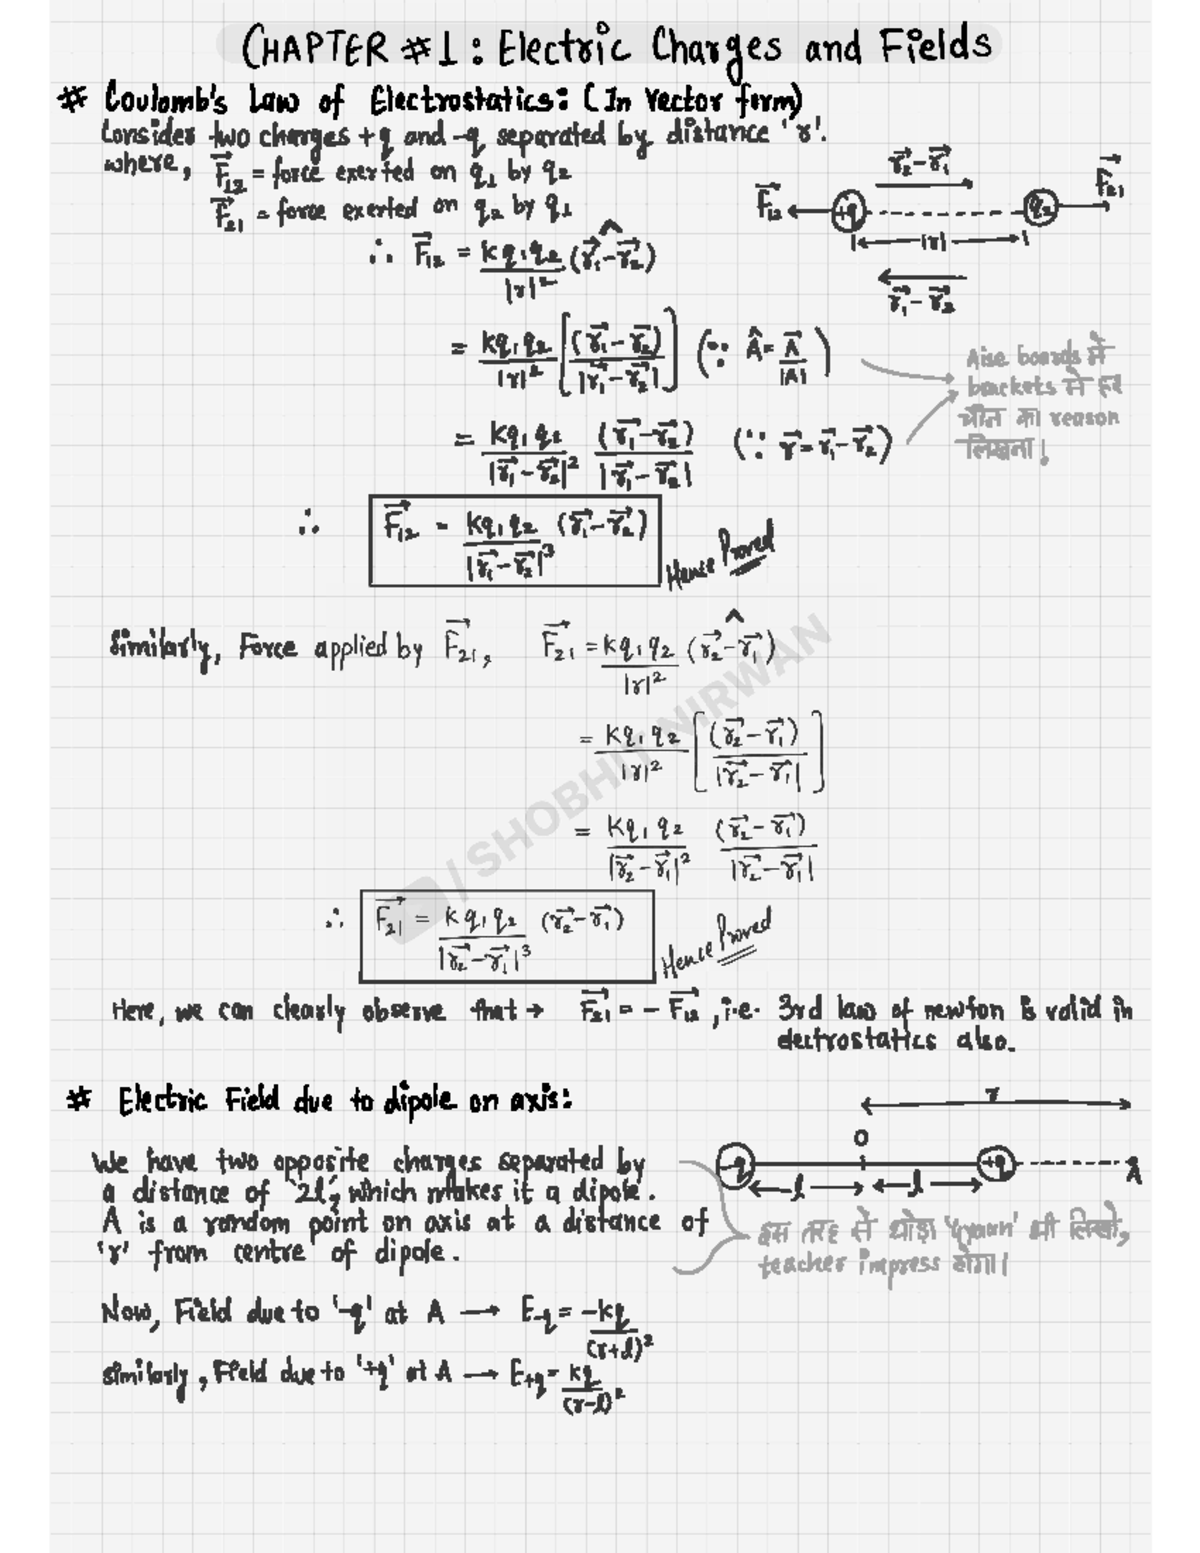 CHAPTER #1 : Electric Charges and Fields
# Coulomb's Law of Electrostatics: (In Vector form)
Consider two charges +q and -q separated by distance 'r'.
where, F⃗₁₂ = force exerted on q₁ by q₂
F⃗₂₁ = force exerted on q₂ by q₁
r⃗₂-r⃗₁
F⃗₁₂ +q q₂ F⃗₂₁
|r|
r⃗₁-r⃗₂
∴ F⃗₁₂ = kq₁q₂/|r|² (r⃗₁-r⃗₂)^
= kq₁q₂/|r|² [(r⃗₁-r⃗₂)/|r⃗₁-r⃗₂|] (∵ Â = A⃗/|A|)
Aise boards में
brackets में हर
चीज का reason
लिखना!
= kq₁q₂/|r⃗₁-r⃗₂|² (r⃗₁-r⃗₂)/|r⃗₁-r⃗₂| (∵ r⃗ = r⃗₁-r⃗₂)
∴ F⃗₁₂ = kq₁q₂/|r⃗₁-r⃗₂|³ (r⃗₁-r⃗₂) Hence Proved
Similarly, Force applied by F⃗₂₁, F⃗₂₁ = kq₁q₂/|r|² (r⃗₂-r⃗₁)^
= kq₁q₂/|r|² [(r⃗₂-r⃗₁)/|r⃗₂-r⃗₁|]
= kq₁q₂/|r⃗₂-r⃗₁|² (r⃗₂-r⃗₁)/|r⃗₂-r⃗₁|
∴ F⃗₂₁ = kq₁q₂/|r⃗₂-r⃗₁|³ (r⃗₂-r⃗₁) Hence Proved
/ SHOBHIT NIRWAN
Here, we can clearly observe that → F⃗₂₁ = - F⃗₁₂, i.e. 3rd law of newton is valid in
electrostatics also.
# Electric Field due to dipole on axis:
r
O
-q +q A
l l
We have two opposite charges separated by
a distance of '2l', which makes it a dipole.
A is a random point on axis at a distance of
'r' from centre of dipole.
इस तरह से थोड़ा 'gyaan' भी लिखो,
teacher impress होगा।
Now, Field due to '-q' at A → E₋q = -kq/(r+l)²
similarly, Field due to '+q' at A → E₊q = kq/(r-l)²